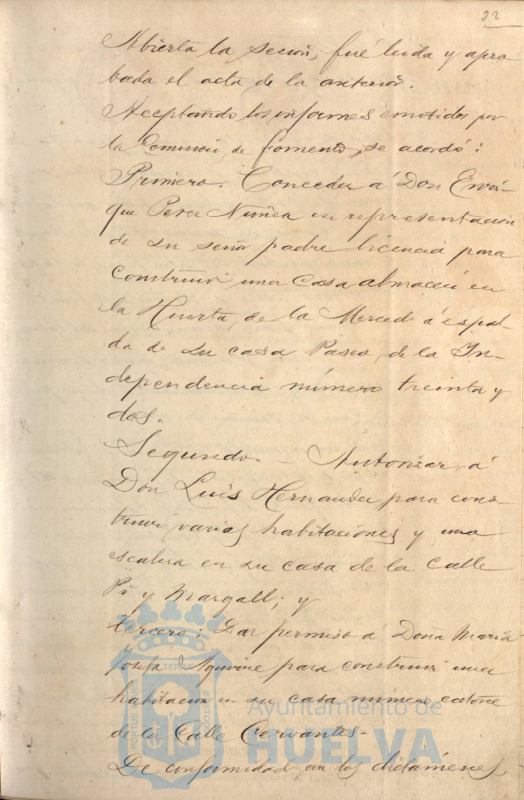 22
Abierta la sesion, fué leida y apro
bada el acta de la anterior.
Aceptando los informes emitidos por
la Comision de fomento, se acordó:
Primero. Conceder á Don Enri-
que Perez Nuñez en representacion
de su señor padre licencia para
construir una casa almacen en
la Huerta de la Merced á espal-
da de su casa Paseo de la In-
dependencia número treinta y
dos.
Segundo. - Autorizar á
Don Luis Hernandez para cons-
truir varias habitaciones y una
escalera en su casa de la Calle
Pi y Margall; y
tercero: Dar permiso á Doña Maria
Josefa Aguirre para construir una
habitacion en su casa número catorce
de la Calle Cervantes-
De conformidad con los dictámenes
Ayuntamiento de
HUELVA